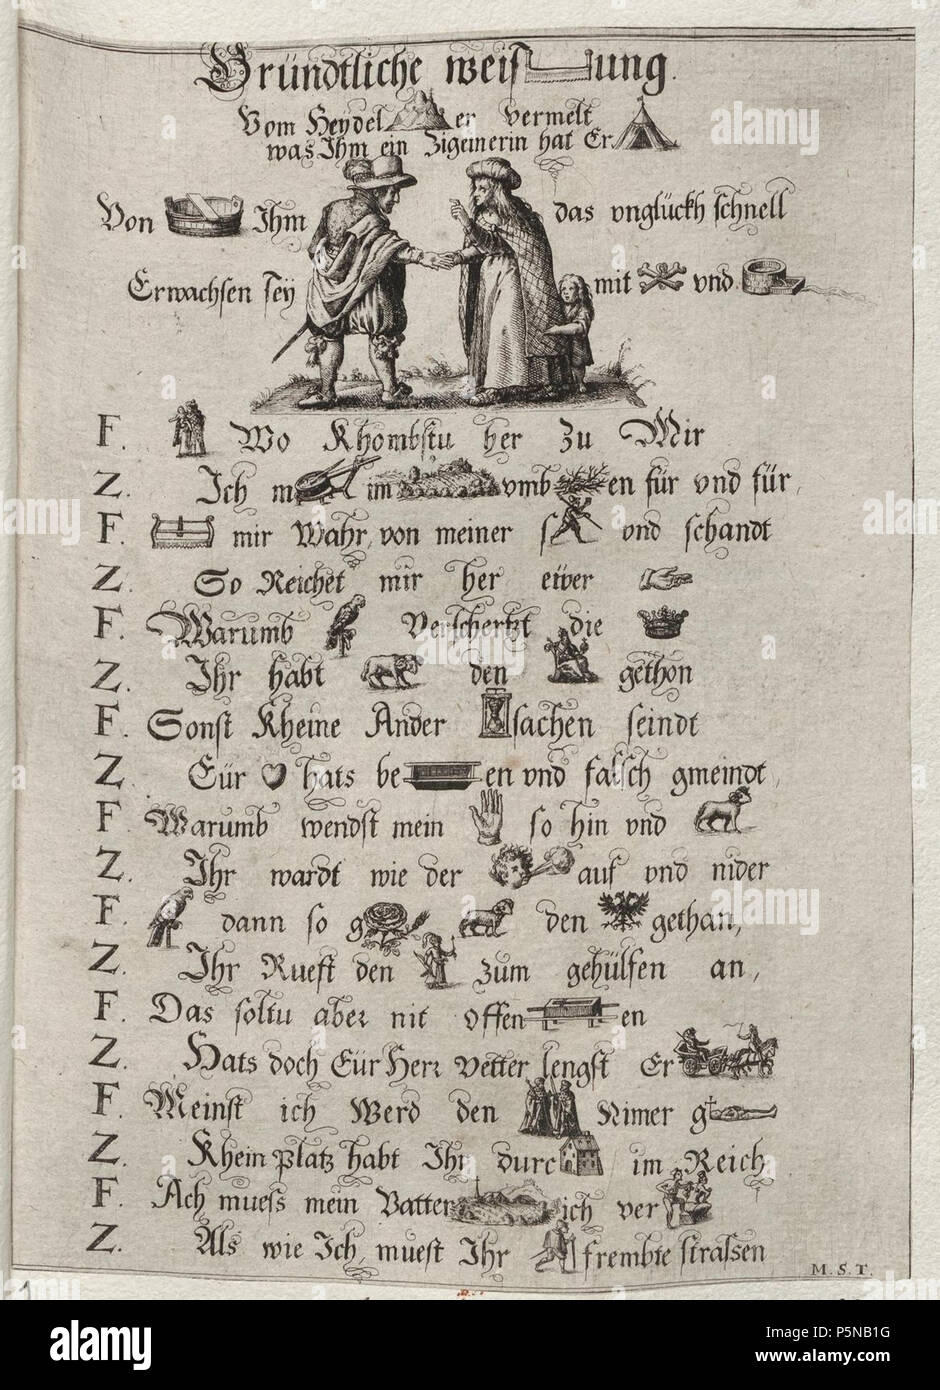 Gründtliche weis ung.
Vom Heydel er vermelt
was Ihm ein Zigeinerin hat Er
Von Ihm das vnglückh schnell
Erwachsen sey mit vnd
F. Wo Khombstu her Zu Mir
Z. Ich m im vmb en für vnd für,
F. mir Wahr, von meiner s vnd schandt
Z. So Reichet mir her eiver
F. Warumb Verschertzt die
Z. Ihr habt den gethon
F. Sonst Kheine Ander sachen seindt
Z. Eür hats be en vnd falsch gmeindt,
F. Warumb wendst mein so hin vnd
Z. Ihr wardt wie der auf vnd nider
F. dann so g den gethan,
Z. Ihr Rueft den zum gehülfen an,
F. Das soltu aber nit offen en
Z. Hats doch Eür Herr Vetter lengst Er
F. Meinst ich Werd den Nimer g
Z. Khein platz habt Ihr durc im Reich
F. Ach muess mein Vatter ich ver
Z. Als wie Ich, muest Ihr frembte strassen
M.S.T.
alamy
Image ID: P5NB1G
www.alamy.com